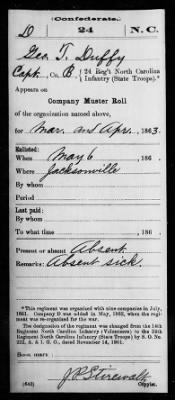 Confederate.
D 24 N. C.
Geo. T. Duffy
Capt., Co. B, 24 Reg't North Carolina
Infantry (State Troops).*
Appears on
Company Muster Roll
of the organization named above,
for Mar. and Apr., 1863.
Enlisted:
When May 6, 186 .
Where Jacksonville
By whom
Period
Last paid:
By whom
To what time , 186 .
Present or absent Absent
Remarks: Absent sick.
*This regiment was organized with nine companies in July,
1861. Company D was added in May, 1862, when the regi-
ment was re-organized for the war.
The designation of the regiment was changed from the 14th
Regiment North Carolina Infantry (Volunteers) to the 24th
Regiment North Carolina Infantry (State Troops) by S. O. No.
222, A. & I. G. O., dated November 14, 1861.
Book mark:
J P Stirewalt
(642) Copyist.